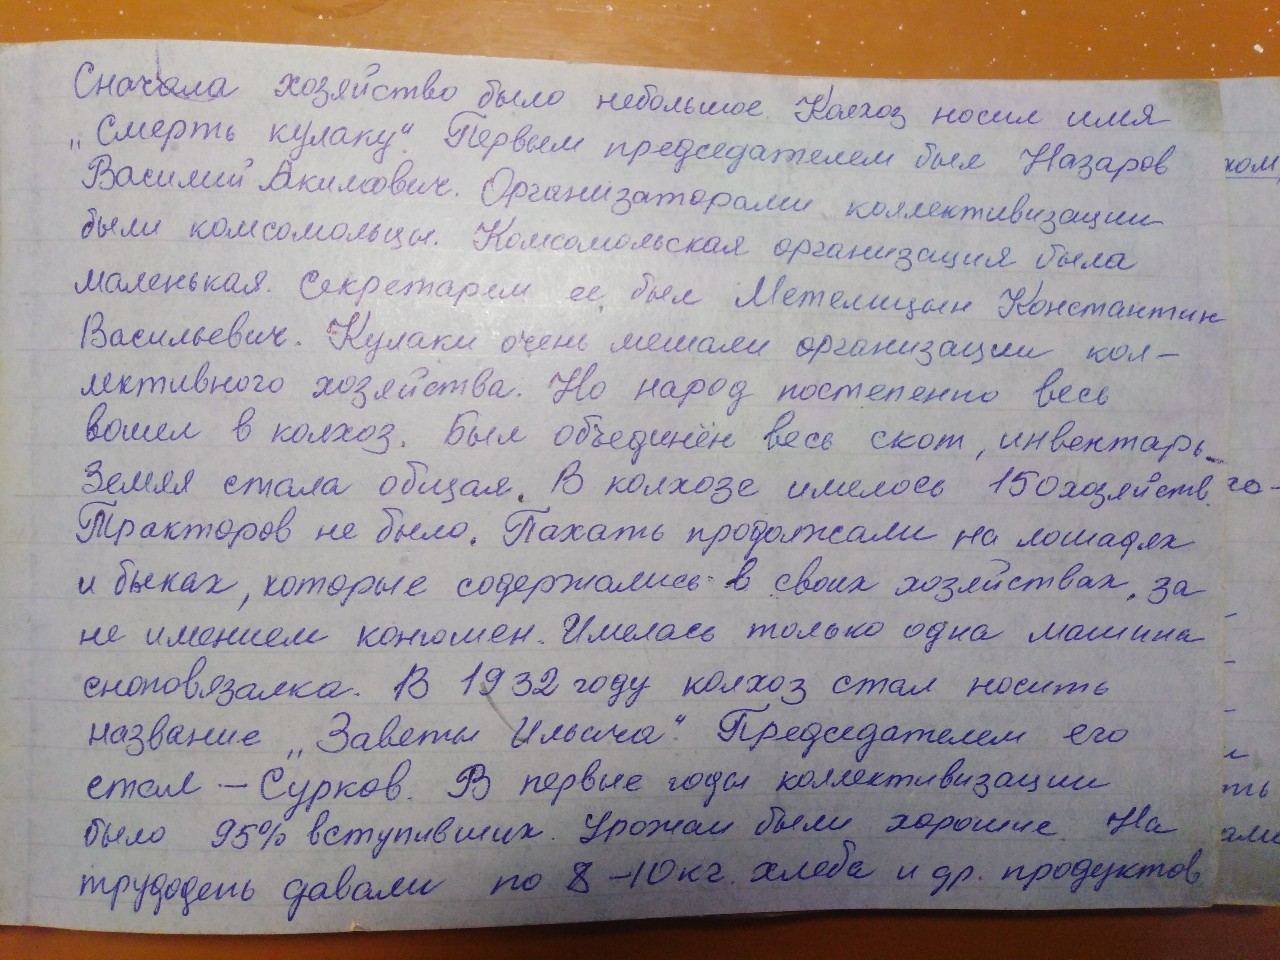 Сначала хозяйство было небольшое. Колхоз носил имя
„Смерть кулаку". Первым председателем был Назаров
Василий Акимович. Организаторами коллективизации
были комсомольцы. Комсомольская организация была
маленькая. Секретарем ее был Метелицын Константин
Васильевич. Кулаки очень мешали организации кол-
лективного хозяйства. Но народ постепенно весь
вошел в колхоз. Был объединён весь скот, инвентарь.
Земля стала общая. В колхозе имелось 150 хозяйств.
Тракторов не было. Пахать продолжали на лошадях
и быках, которые содержались в своих хозяйствах, за
не имением конюшен. Имелась только одна машина
сноповязалка. В 1932 году колхоз стал носить
название „Заветы Ильича". Председателем его
стал – Сурков. В первые годы коллективизации
было 95% вступивших. Урожаи были хорошие. На
трудодень давали по 8–10 кг. хлеба и др. продуктов